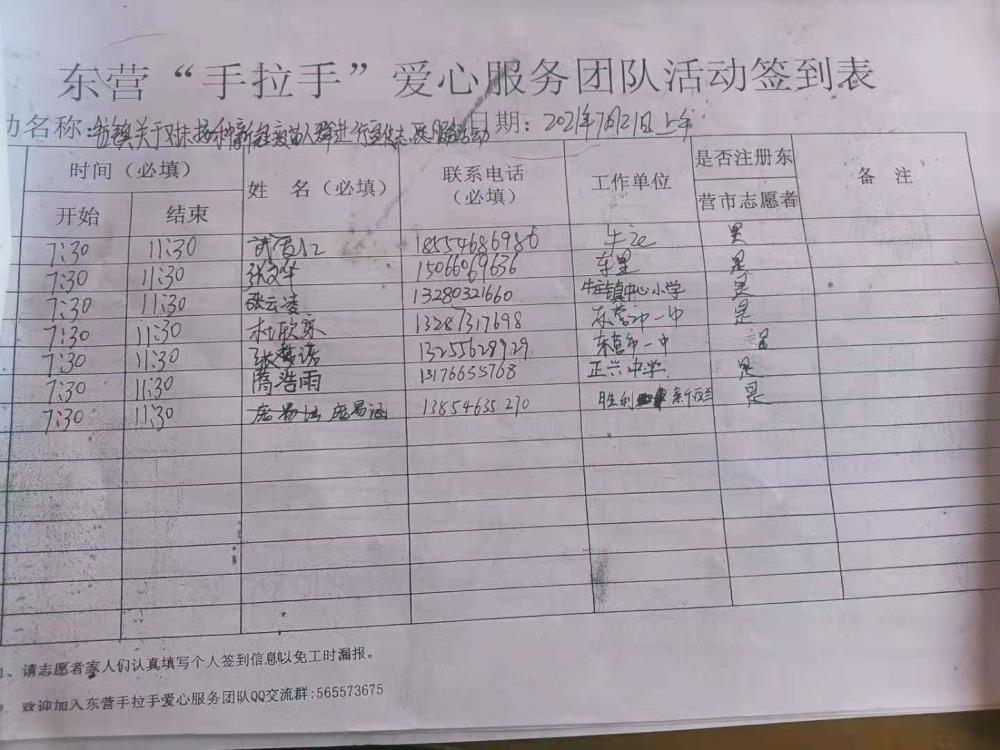 东营“手拉手”爱心服务团队活动签到表
动名称: 镇关于对未接种新冠疫苗人群进行宣传志愿服务活动 日期: 2021年7月21日上午
时间（必填） 姓 名（必填） 联系电话（必填） 工作单位 是否注册东营市志愿者 备 注
开始 结束
7:30 11:30 18554686986 牛庄 是
7:30 11:30 张文华 15066069636 是
7:30 11:30 张云凌 13280321660 牛庄镇中心小学 是
7:30 11:30 杜欣 13287317698 东营市一中 是
7:30 11:30 张 诺 13255629929 东营市一中 是
7:30 11:30 蒋浩雨 13176655768 正兴中学 是
7:30 11:30 庞易涵 13854635270 胜利 是
、请志愿者家人们认真填写个人签到信息以免工时漏报。
欢迎加入东营手拉手爱心服务团队QQ交流群:565573675